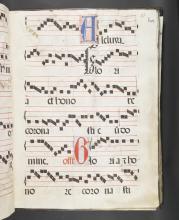 Alleluya.
Glo ri
a et hono re
corona sti e do
mine. Glo ri a et ho
no re corona sti